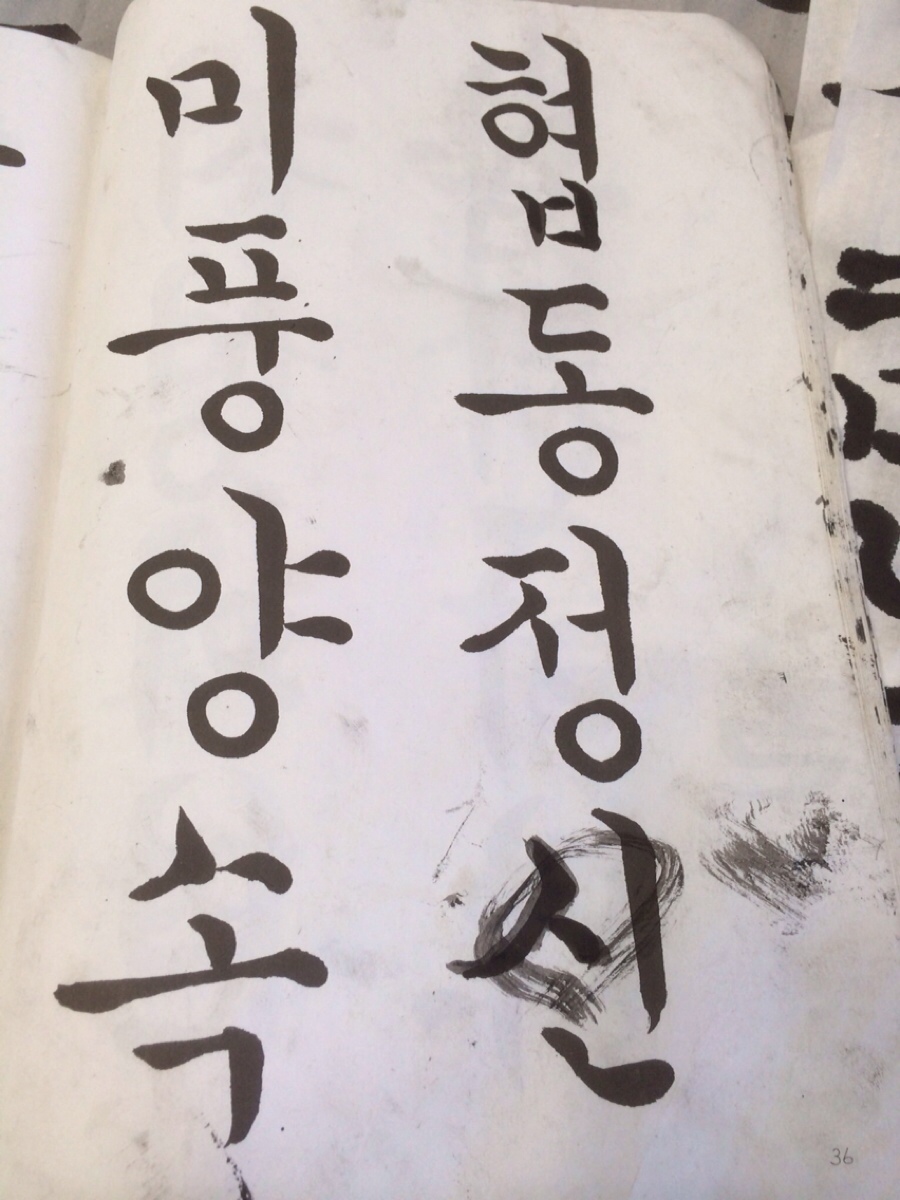 협동정신
미풍양속
36